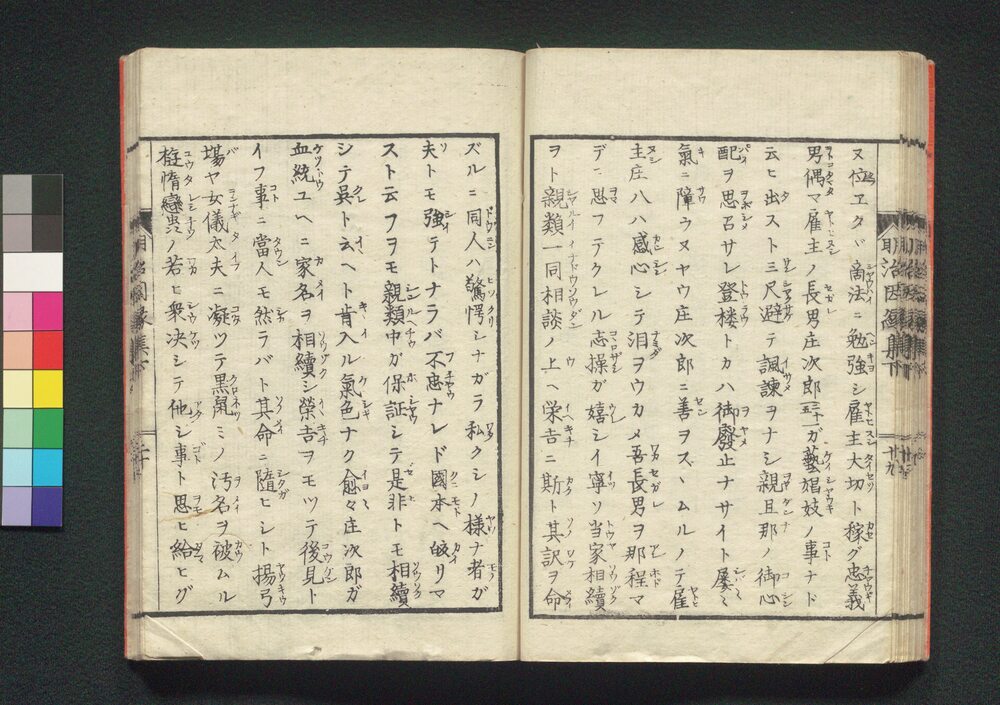 又位ヱタバ商法ニ勉強シ雇主大切ト稼グ忠義
男偶マ雇主ノ長男庄次郎ガ藝娼妓ノ事ナド
云ヒ出スト三尺避テ諷諫ヲナシ親旦那ノ御心
配ヲ思召サレ登楼トカハ御廢止ナサイト屡々
氣ニ障ウヌヤウ庄次郎ニ善ヲスヽムルノテ雇
主庄八ハ感心シテ泪ヲウカメ吾長男ヲ那程マ
デニ思フテクレル志操ガ嬉シイ寧ソ当家相續
ヲト親類一同相談ノ上ヘ栄吉ニ斯ト其訳ヲ命
ズルニ同人ハ驚愕シナガラ私クシノ様ナ者ガ
夫トモ強テトナラバ不忠ナレド國本ヘ皈リマ
スト云フヲモ親類中ガ保証シテ是非トモ相續
シテ呉ト云ヘト肯入ル氣色ナク愈々庄次郎ガ
血統ユヘニ家名ヲ相續シ榮吉ヲモツテ後見ト
イフ事ニ當人モ然ラバト其命ニ隨ヒシト揚弓
場ヤ女儀太夫ニ凝ツテ黒鼠ミノ汚名ヲ破ムル
遊惰蠻民ノ若ヒ衆決シテ他シ事ト思ヒ給ヒグ